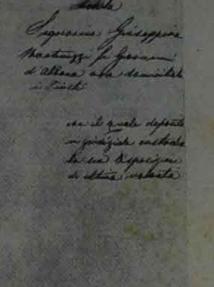 Signorina Giuseppina
Mastruzzi fu Giovanni
d'Albano ora domiciliata
in Tivoli
con il quale deposita
in giudiziale
la sua disposizione
di ultima volontà